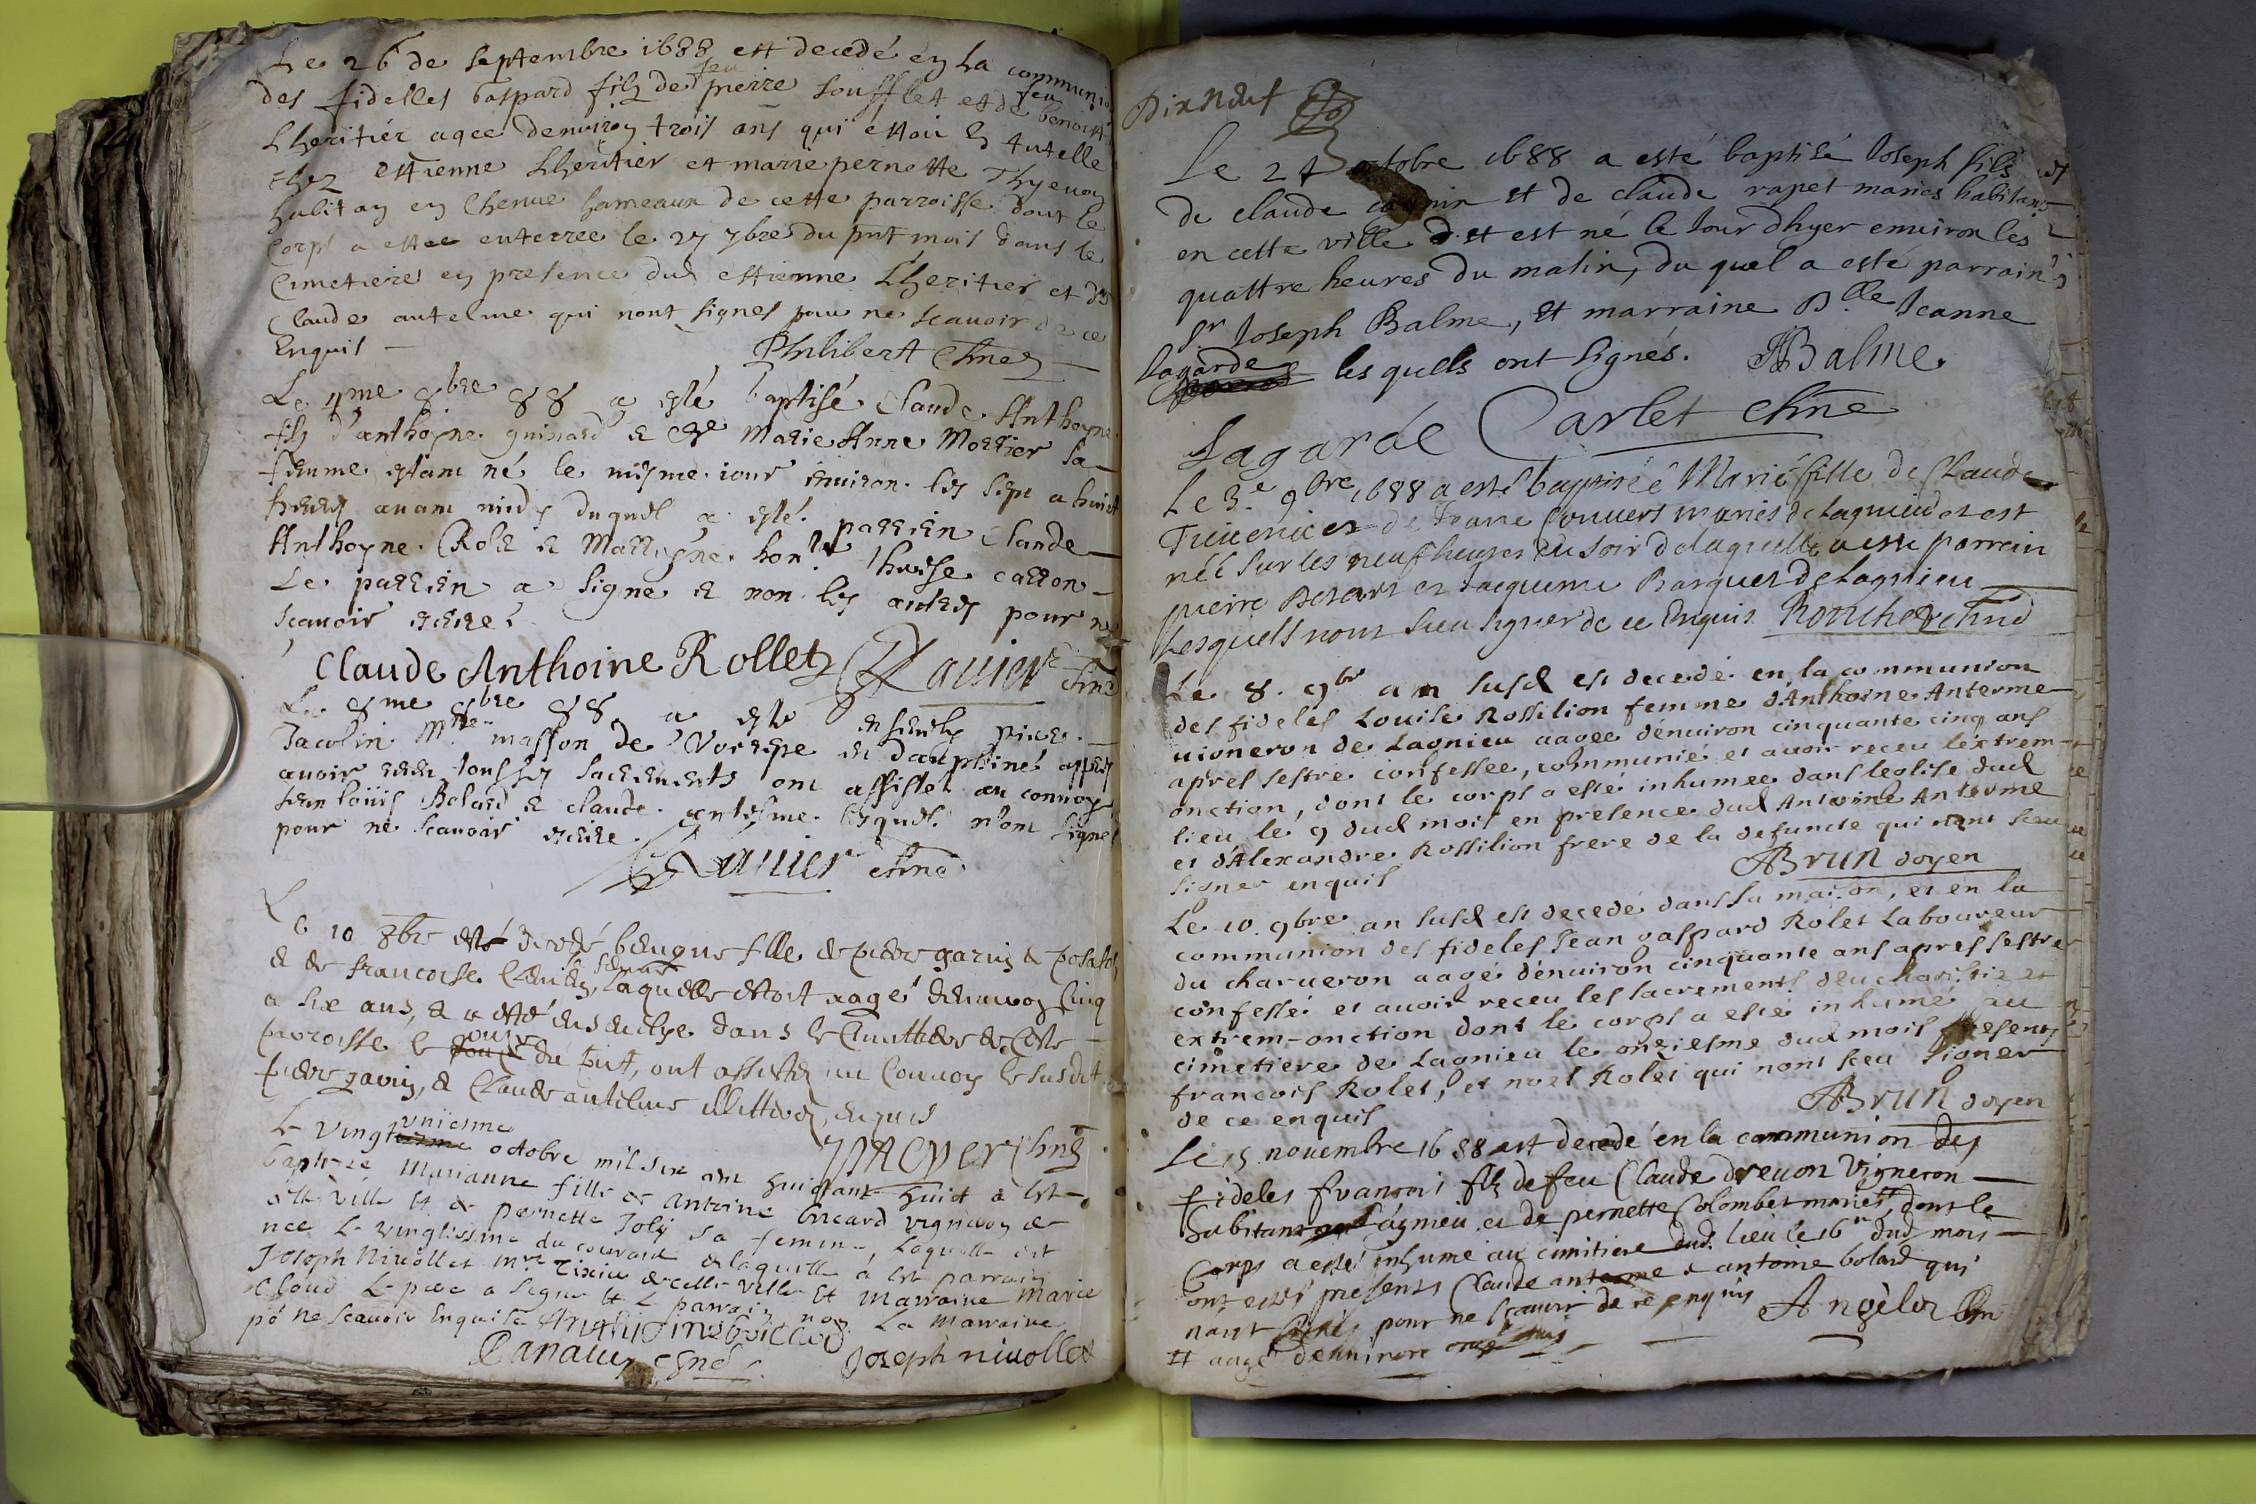 Le 26 de septembre 1688 est decedé en la communion
des fidelles gaspard filz de feu pierre soufflet et de feu benoitte
Lheritier agee denviron trois ans qui estoit en tutelle
chez estienne Lheritier et marie pernette Thyevon
habitans en Chenue hameaux de cette parroisse dont le
corps a estee enterree le 27 7bre du pnt mois dans le
Cimetiere en presence dud estienne Lheritier et de
Claude antelme qui nont signes pour ne scauoir de ce
Enquis
Philibert Chne
Le 4me 8bre 88 a esté baptisé Claude Anthoyne
filz d'anthoyne guinard et Marie Anne Mortier sa
femme estant né le mesme iour enuiron les sept a huict
heures auant midy duquel a esté parrein Claude
Anthoyne Rolet et Marreyne thoise carron
Le parrein a signé et non les autres pour ne
scauoir escrire
Claude Anthoine Rollet Rauier Chne
Le 8me 8bre 88 a esté enseuely
Jacolin Mtre masson de Voreppe en dauphiné apres
auoir receu tous ses sacrements ont assisté au conuoy
Jean loüis Bolard et claude antelme lesquels n'ont signé
pour ne scauoir escrire
Rauier chne
Le 10 8bre fille de pierre garin
et de francoise laquelle estoit aagé denuiron cinq
a six ans, et a esté enseuelye dans le Cimethiere de cette
parroisse le onze du pnt, ont assisté au Conuoy le susdit
pierre garin, et Claude antelme illitterez, enquis
Pacyer Chne
Le vingt vniesme octobre mil six cent huictante huict a esté
baptizée Marianne fille de Antoine vigneron de
cette ville et de pernette Joly sa femme, laquelle est
née le vingtiesme du courant de laquelle a esté parrain
Joseph Nivollet Mre de cette ville et marraine Marie
Le pere a signé et le parrain non la marraine
po ne scauoir Enquise
Panaux chne Joseph nivollet
Dix Neuf
Le 24 octobre 1688 a esté baptisé Joseph fils
de claude et de claude rapet mariés habitans
en cette ville et est né le Jour dhyer enuiron les
quattre heures du matin, du quel a esté parrain
Sr Joseph Balme, et marraine Dlle Jeanne
lagarde les quells ont signés. JBalme
Lagarde Carlet chne
Le 3e 9bre 1688 a esté baptisée Marie fille de Claude
et de Jeanne Conuers mariés de Lagnieu et est
née sur les neuf heures du soir de laquelle a esté parrein
pierre et Jacqueme de Lagnieu
lesquells nont sceu signer de ce Enquis Roncher chne
Le 8. 9br an susd est decedé en la communion
des fideles Louise Rossilion femme dAnthoine Anterme
uigneron de Lagnieu aagee dénuiron cinquante cinq ans
apres sestre confessee, communié et auoir receu léxtrem-
onction, dont le corps a esté inhumee dans leglise dud
lieu le 9 dud mois en presence dud Antoine Anterme
et dAlexandre Rossilion frere de la defuncte qui n'ont sceu
signer enquis
ABrun doyen
Le 10. 9bre an susd est decedé dans sa maison, et en la
communion des fideles Jean gaspard Rolet Laboureur
du charueron aagé dénuiron cinquante ans apres sestre
confessé et auoir receu les sacrements deucharistie et
extrem-onction dont le corps a esté inhumé au
cimetiere de Lagnieu le onziesme dud mois presents
francois Rolet, et noel Rolet qui nont sceu signer
de ce enquis
ABrun doyen
Le 15 novembre 1688 est decedé en la communion des
fideles francois filz de feu Claude dreuon Vigneron
habitant Lagnieu et de pernette Colomber mariés, dont le
Corps a esté inhumé au cimitiere dud. lieu le 16e dud mois
ont estés presents Claude anterme et antoine bolard qui
n'ont signés pour ne scauoir de ce enquis Angelor Chn
et aagé denuiron